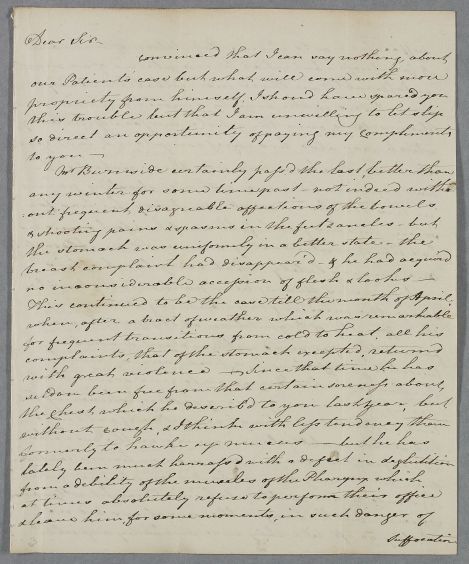 Dear Sir
convinced that I can say nothing about
our Patients case but what will come with more
propriety from himself, I should have spared you
this trouble but that I am unwilling to let slip
so direct an opportunity of paying my compliments
to you —
Mr Burnside certainly pass'd the last, better than
any winter for some time past - not indeed with
out frequent, disagreable affections of the bowels
& shooting pains & spasms in the feet & ancles - but
the stomach was uniformly in a better state - the
breast complaint had disappear'd - & he had acquired
no inconsiderable accession of flesh & looks —
This continued to be the case till the month of April,
when, after a tract of weather which was remarkable
for frequent transitions from cold to heat, all his
complaints, that of the stomach excepted, returnd
with great violence — Since that time he has
seldom been free from that certain soreness about
the Chest, which he describ'd to you last year, but
without cough, & I think with less tendency than
formerly to hawke up mucus — but he has
lately been much harrass'd with a defect in deglutition
from a debility of the muscles of the Pharynx which
at times absolutely refuse to perform their office
& leave him, for some moments, in such danger of
suffocation